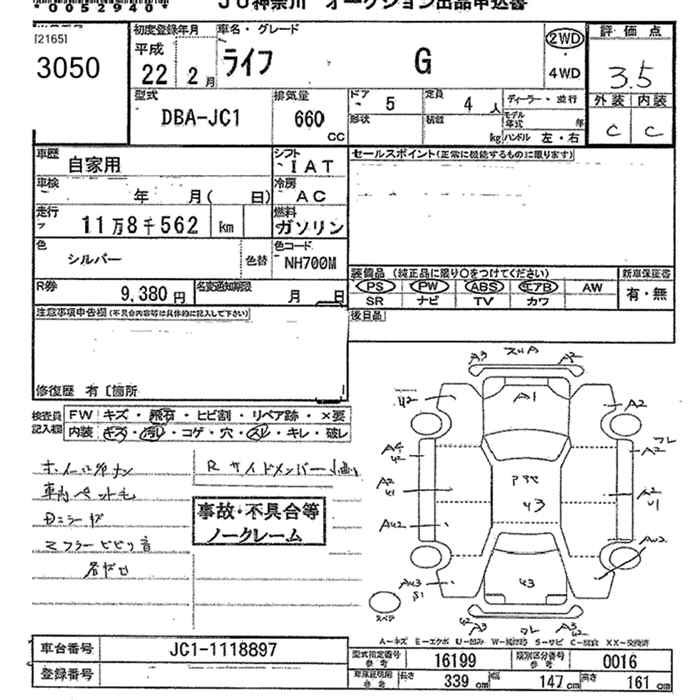 *0052940*
JU神奈川 オークション出品申込書
[2165]
3050
初度登録年月
平成
22年 2月
車名・グレード
ライフ G
2WD
・
4WD
評価点
3.5
外装 内装
C C
型式
DBA-JC1
排気量
660
CC
ドア 5
定員 4人
形状
積載 kg
ディーラー・並行
モデル年式 年
ハンドル 左・右
車歴
自家用
シフト
IAT
車検
年 月( 日)
冷房
AC
走行
11万8千562 km
燃料
ガソリン
色
シルバー
色替
色コード
NH700M
R券
9,380円
名変通知期限
月 日
セールスポイント(正常に機能するものに限ります)
装備品(純正品に限り○をつけてください)
新車保証書
PS PW ABS エアB AW
SR ナビ TV カワ
有・無
後日品
注意事項申告欄(不具合内容等は具体的に記入して下さい)
修復歴 有〔箇所
検査員
記入欄
FW キズ・飛石・ヒビ割・リペア跡・×要
内装 キズ・汚れ・コゲ・穴・スレ・キレ・破レ
R サイドメンバー
マフラービビリ音
事故・不具合等
ノークレーム
A3 A2
A1
U2 A2
A4
U2
A2
A2
U1
A2
U1
U3
AU2 AU2
AU3
S1
U3
スペア
A-キズ E-エクボ U-凹み W-補修跡 S-サビ C-腐食 XX-交換済
車台番号
JC1-1118897
登録番号
型式指定番号
参考
16199
類別区分番号
参考
0016
車庫証明用
参考
長さ 339cm
幅 147cm
高さ 161cm